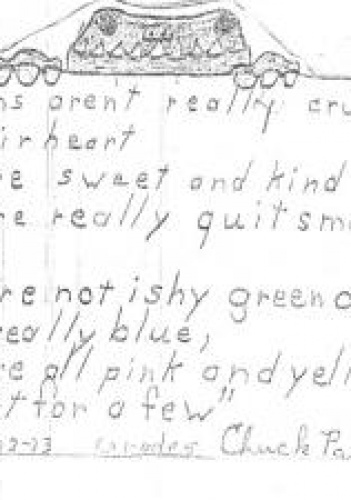 ns aren't really cru
ir heart
e sweet and kind
re really quit sma
re not ishy green o
really blue,
re all pink and yell
t for a few"
2-23 Chuck Pa